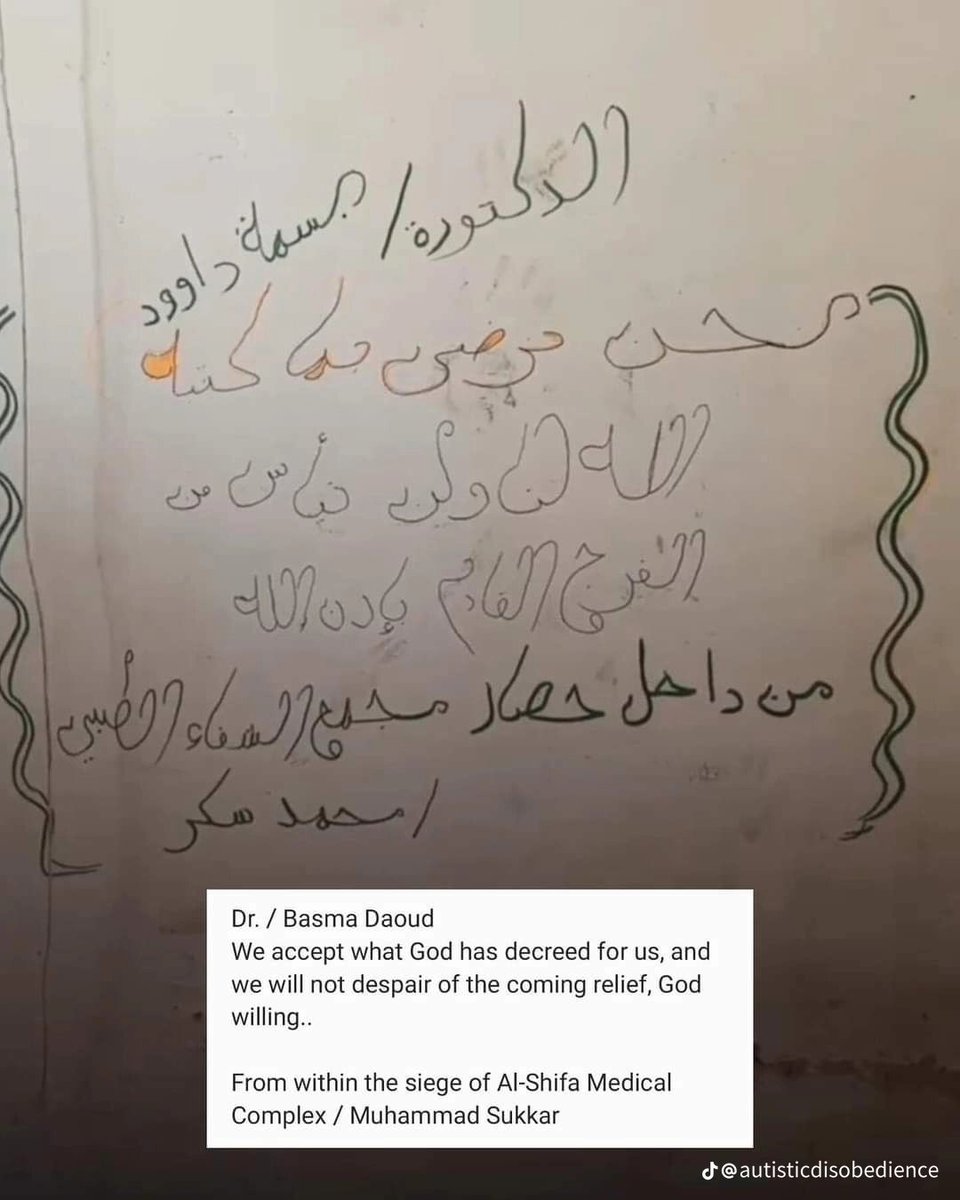 الدكتورة/ بسمة داوود
نحن نرضى بما كتبه
الله لنا ولن نيأس من
الفرج القادم بإذن الله
من داخل حصار مجمع الشفاء الطبي
/محمد سكر
Dr. / Basma Daoud
We accept what God has decreed for us, and
we will not despair of the coming relief, God
willing..
From within the siege of Al-Shifa Medical
Complex / Muhammad Sukkar
@autisticdisobedience